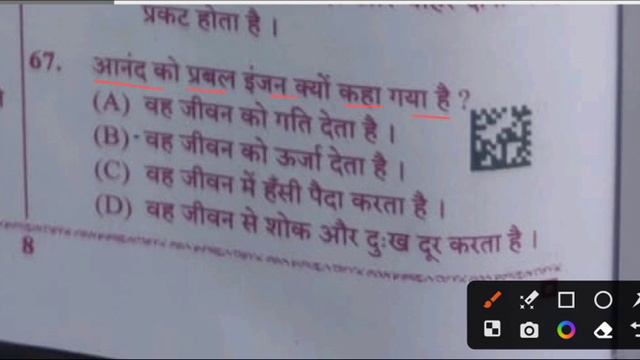 प्रकट होता है ।
67. आनंद को प्रबल इंजन क्यों कहा गया है ?
(A) वह जीवन को गति देता है ।
(B) वह जीवन को ऊर्जा देता है ।
(C) वह जीवन में हँसी पैदा करता है ।
(D) वह जीवन से शोक और दुःख दूर करता है ।
8